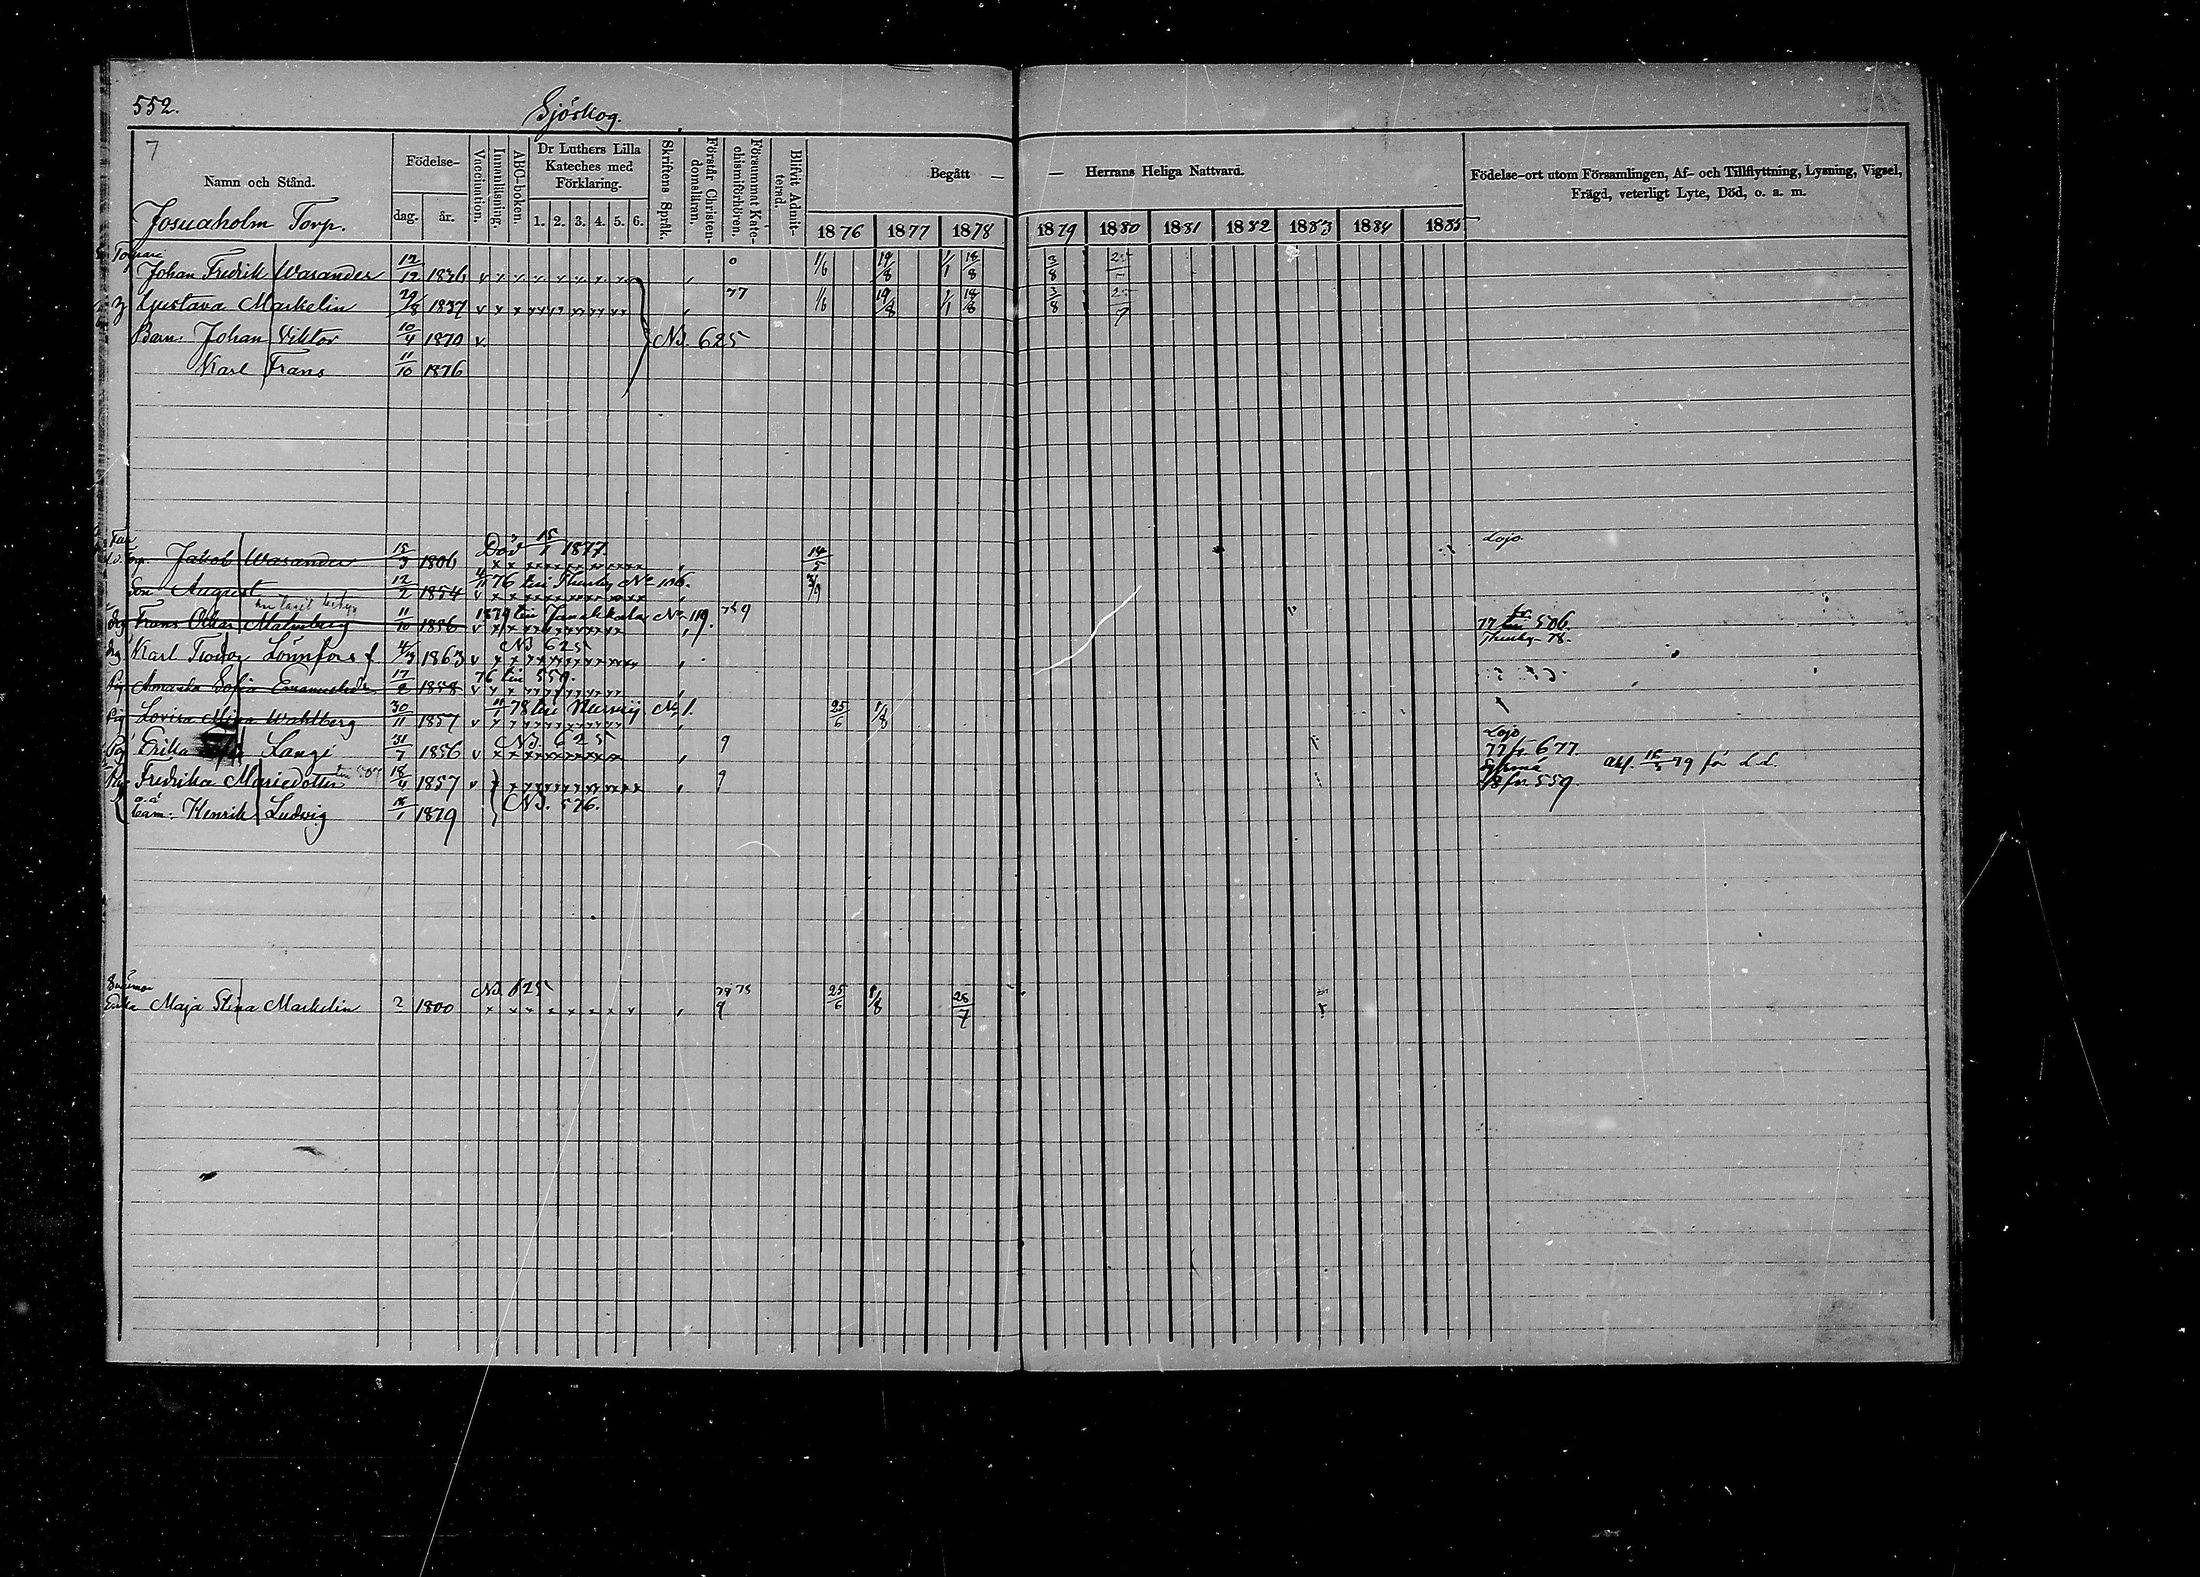 552.
Sjöskog.
7
Namn och Stånd.
Födelse-
dag. år.
Vaccination.
Innanläsning.
ABC-boken.
Dr Luthers Lilla
Kateches med
Förklaring.
1. 2. 3. 4. 5. 6.
Skriftens Språk.
Förstår Christen-
domslärn.
Försummat Kate-
chismiförhören.
Blifvit Admit-
terad.
Begått —
— Herrans Heliga Nattvard.
1876 1877 1878 1879 1880 1881 1882 1883 1884 1885
Födelse-ort utom Församlingen, Af- och Tillflyttning, Lysning, Vigsel,
Frägd, veterligt Lyte, Död, o. a. m.
Josuaholm Torp.
Torpare
Johan Fredrik Wasander 12/12 1836 v 0 1/6 19/8 1/1 18/8 3/8 25
Gustava Markelin 29/8 1837 v 77 1/6 19/8 1/1 18/8 3/8 25/7
Barn: Johan Viktor 10/4 1870 v NB. 625
Karl Frans 11/10 1876
Död 15/1 1877. Lojo
Jakob Wasander 15/3 1806 14/5
Son August 12/2 1854 v 76 till Thusby No 106.
Frans Oskar Malmberg 11/10 1856 v 1879 till Janakkala No 119. 9 77 506.
Thusby 78.
Karl Teodor Lönnfors 4/3 1863 v NB 625
Amanda Sofia 17 1858 v 76 till 559.
Lovisa Mina Wahlberg 30/11 1857 v 11/1 78 till No 1. 25/6 1/8
Lojo
Erika Langé 31/7 1856 v NB. 625 9 77 fr. 677
Fredrika Mariedotter till 507 18/4 1857 v 9 78 fr. 559. 79 för
Barn: Henrik Ludvig 1879 NB. 576.
Enka Maja Stina Markelin ? 1800 NB 625 9 25/6 1/8 28/7